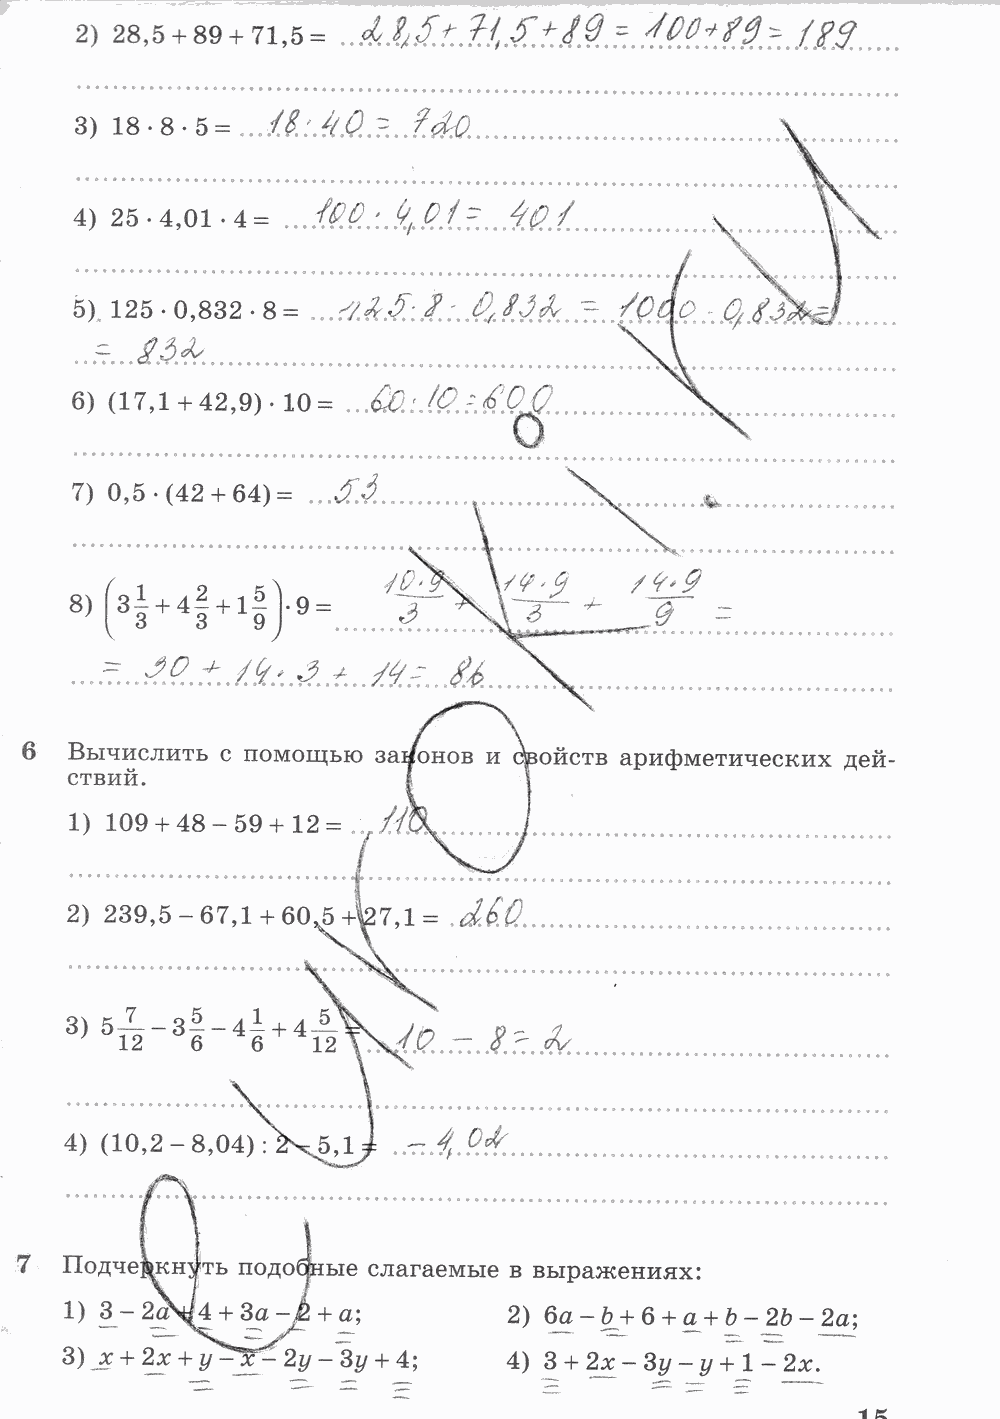 2) 28,5 + 89 + 71,5 = 28,5 + 71,5 + 89 = 100 + 89 = 189
3) 18 · 8 · 5 = 18 · 40 = 720
4) 25 · 4,01 · 4 = 100 · 4,01 = 401
5) 125 · 0,832 · 8 = 125 · 8 · 0,832 = 1000 · 0,832 =
= 832
6) (17,1 + 42,9) · 10 = 60 · 10 = 600
7) 0,5 · (42 + 64) = 53
8) (3 1/3 + 4 2/3 + 1 5/9) · 9 = 10·9/3 + 14·9/3 + 14·9/9 =
= 30 + 14 · 3 + 14 = 86
6 Вычислить с помощью законов и свойств арифметических дей-
ствий.
1) 109 + 48 − 59 + 12 = 110
2) 239,5 − 67,1 + 60,5 + 27,1 = 260
3) 5 7/12 − 3 5/6 − 4 1/6 + 4 5/12 = 10 − 8 = 2
4) (10,2 − 8,04) : 2 − 5,1 = −4,02
7 Подчеркнуть подобные слагаемые в выражениях:
1) 3 − 2a + 4 + 3a − 2 + a; 2) 6a − b + 6 + a + b − 2b − 2a;
3) x + 2x + y − x − 2y − 3y + 4; 4) 3 + 2x − 3y − y + 1 − 2x.
15